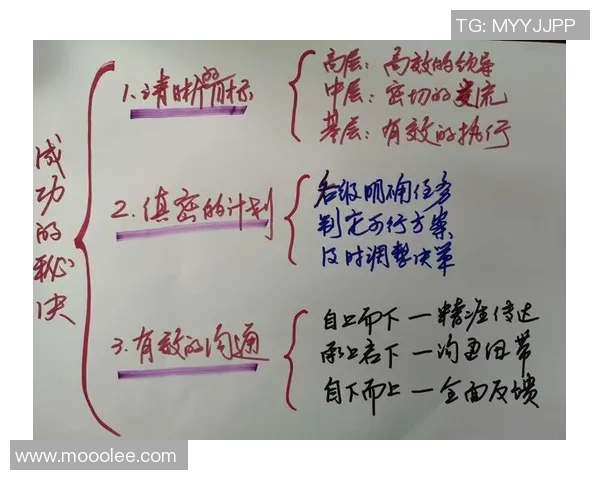 TG: MYYJJPP
成功的秘决
1.清晰的目标
高层：高效的领导
中层：密切的交流
基层：有效的执行
2.缜密的计划
各级明确任务
制定可行方案
及时调整决策
3.有效的沟通
自上而下—精准传达
承上启下—沟通纽带
自下而上—全面反馈
www.mooolee.com